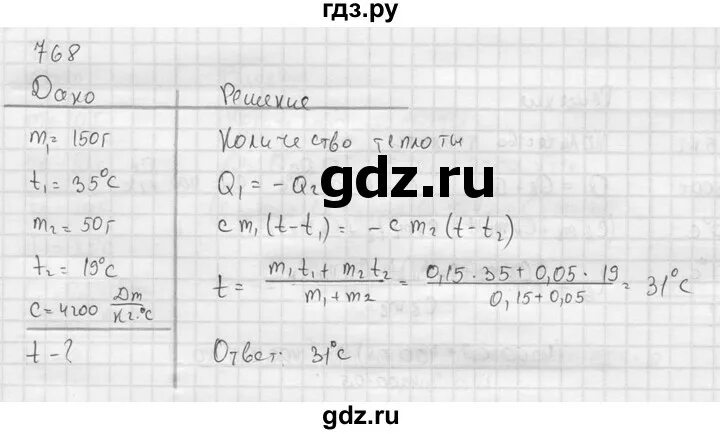 гдз.ру
768
Дано
m₁ = 150г
t₁ = 35°C
m₂ = 50г
t₂ = 19°C
C = 4200 Дж/кг·°C
t - ?
Решение
Количество теплоты
Q₁ = - Q₂
c m₁ (t - t₁) = - c m₂ (t - t₂)
t = (m₁t₁ + m₂t₂)/(m₁ + m₂) = (0,15 · 35 + 0,05 · 19)/(0,15 + 0,05) = 31°C
Ответ: 31°C
gdz.ru
gdz.ru